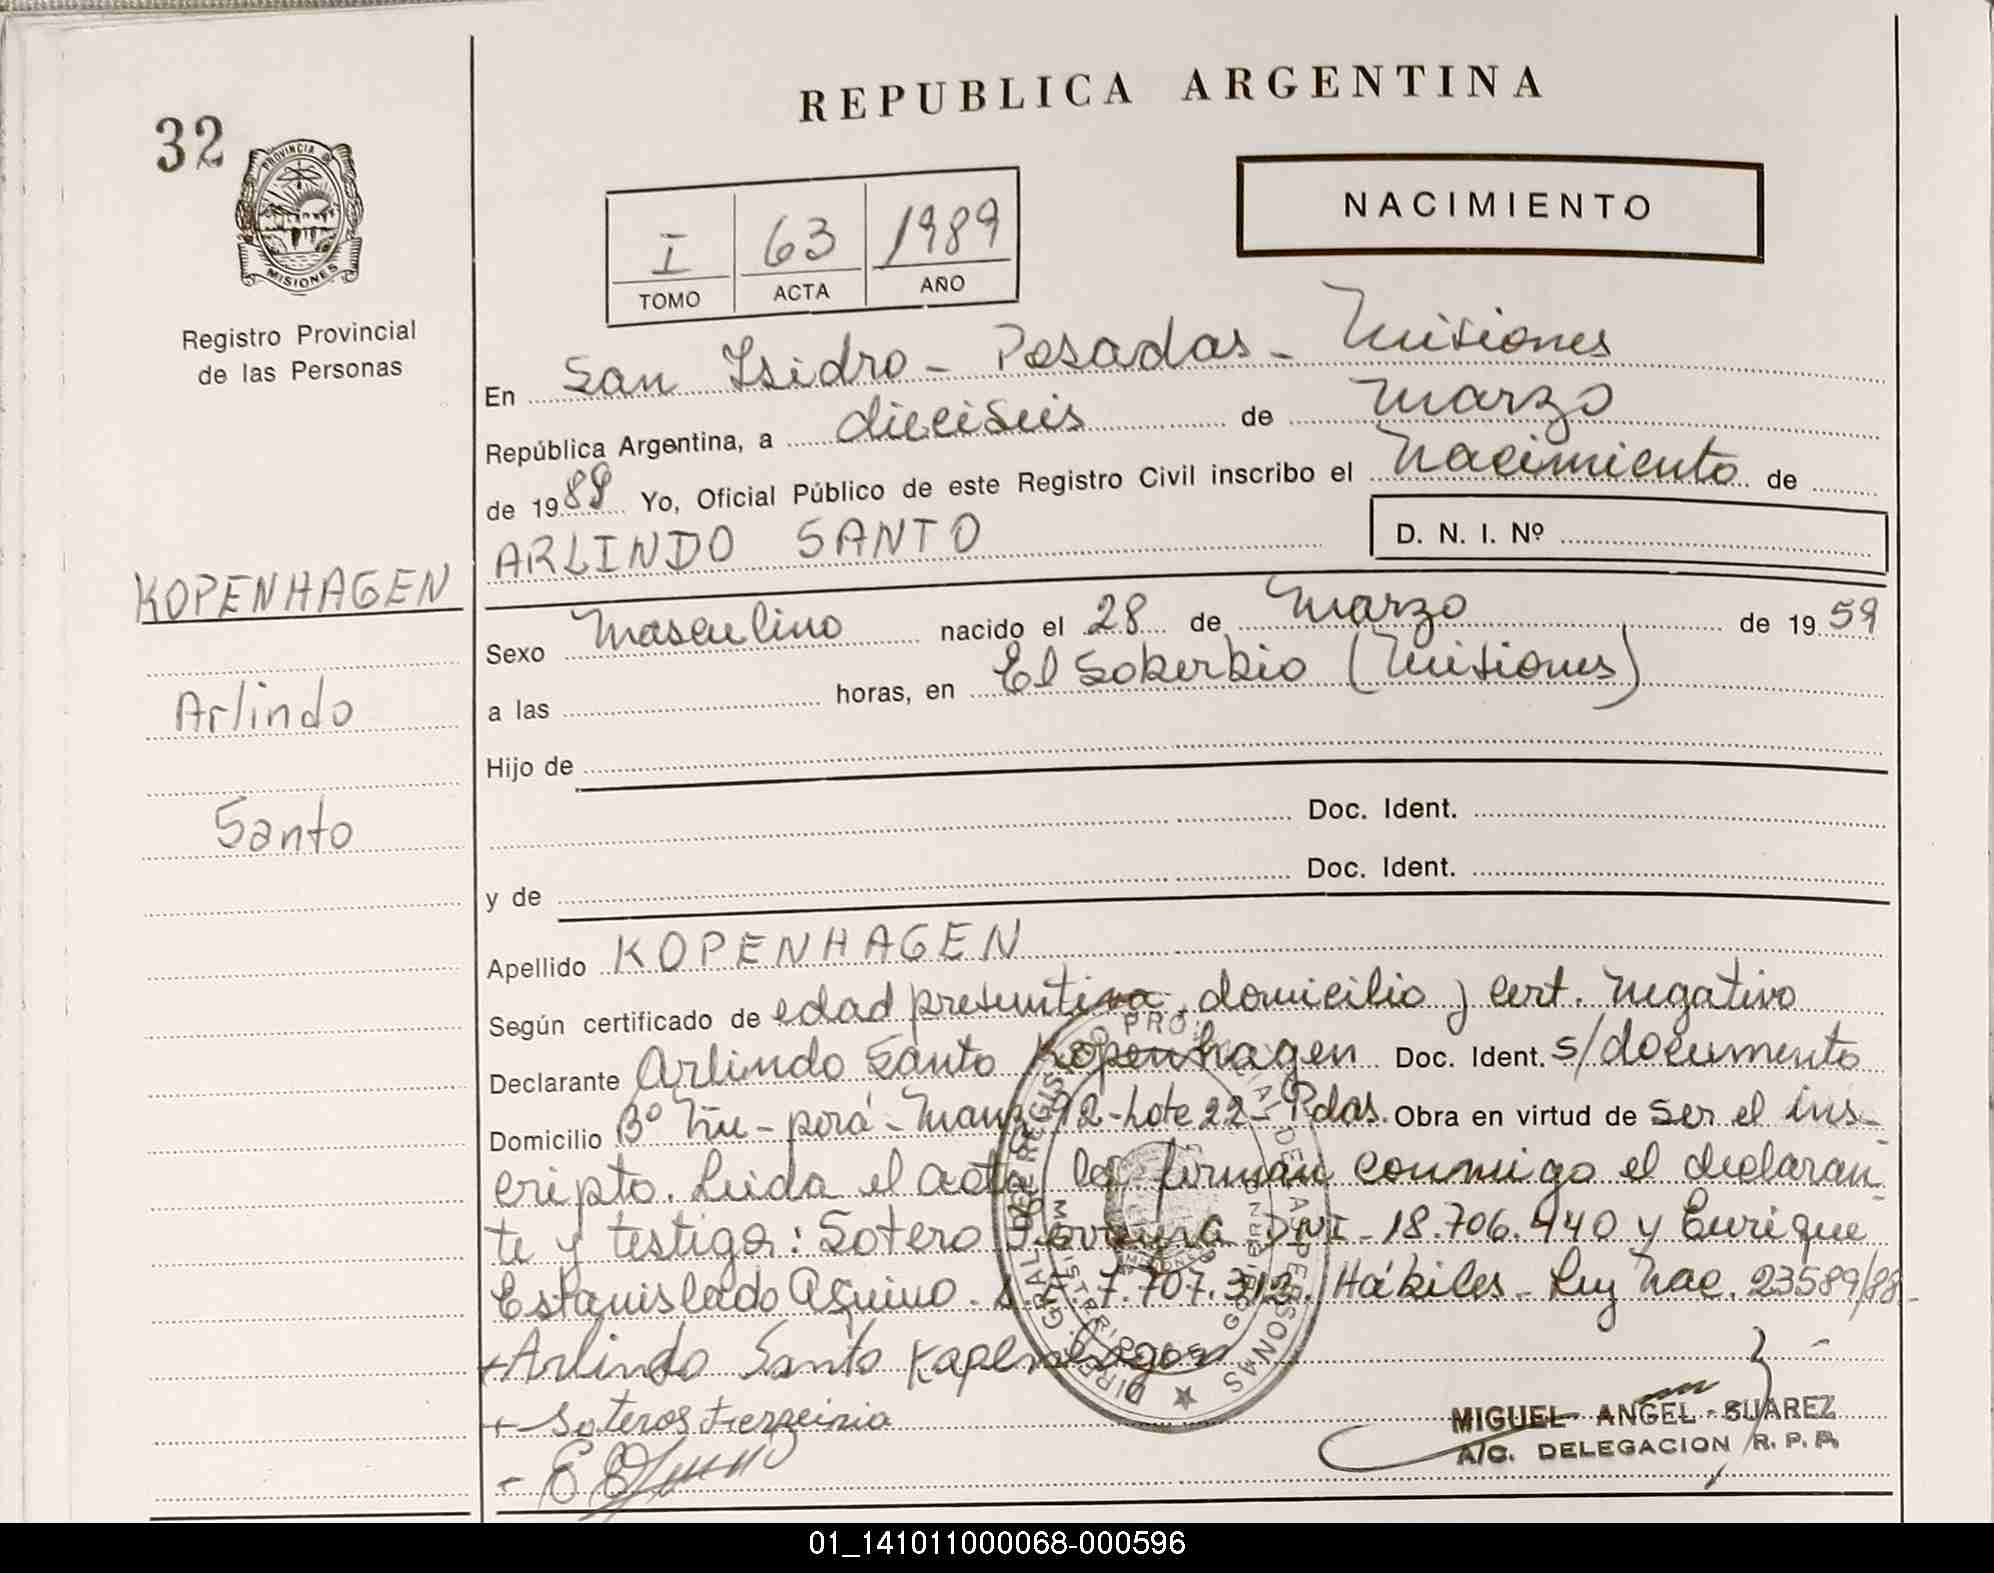 REPUBLICA ARGENTINA
32
PROVINCIA DE
MISIONES
Registro Provincial
de las Personas
NACIMIENTO
I 63 1989
TOMO ACTA AÑO
En San Isidro - Posadas - Misiones
República Argentina, a dieciséis de Marzo
de 1989 Yo, Oficial Público de este Registro Civil inscribo el Nacimiento de
ARLINDO SANTO D. N. I. Nº
KOPENHAGEN
Arlindo
Santo
Sexo Masculino nacido el 28 de Marzo de 1959
a las horas, en El Soberbio (Misiones)
Hijo de
Doc. Ident.
Doc. Ident.
y de
Apellido KOPENHAGEN
Según certificado de edad presuntiva, domicilio y cert. Negativo
Declarante Arlindo Santo Kopenhagen Doc. Ident. s/documento
Domicilio Bº Ñu-porá - Manz 92 - Lote 22 - Pdas. Obra en virtud de ser el ins-
cripto. Leida el acta la firman conmigo el declaran-
te y testigo: Sotero DNI - 18.706.440 y Enrique
Estanislado Aquino. L.E. 7.707.312. Hábiles - Ley Nac. 23589/88 -
+ Arlindo Santo Kapenhagen
+ Soteros
MIGUEL ANGEL SUAREZ
A/C. DELEGACION R. P. P.
01_141011000068-000596